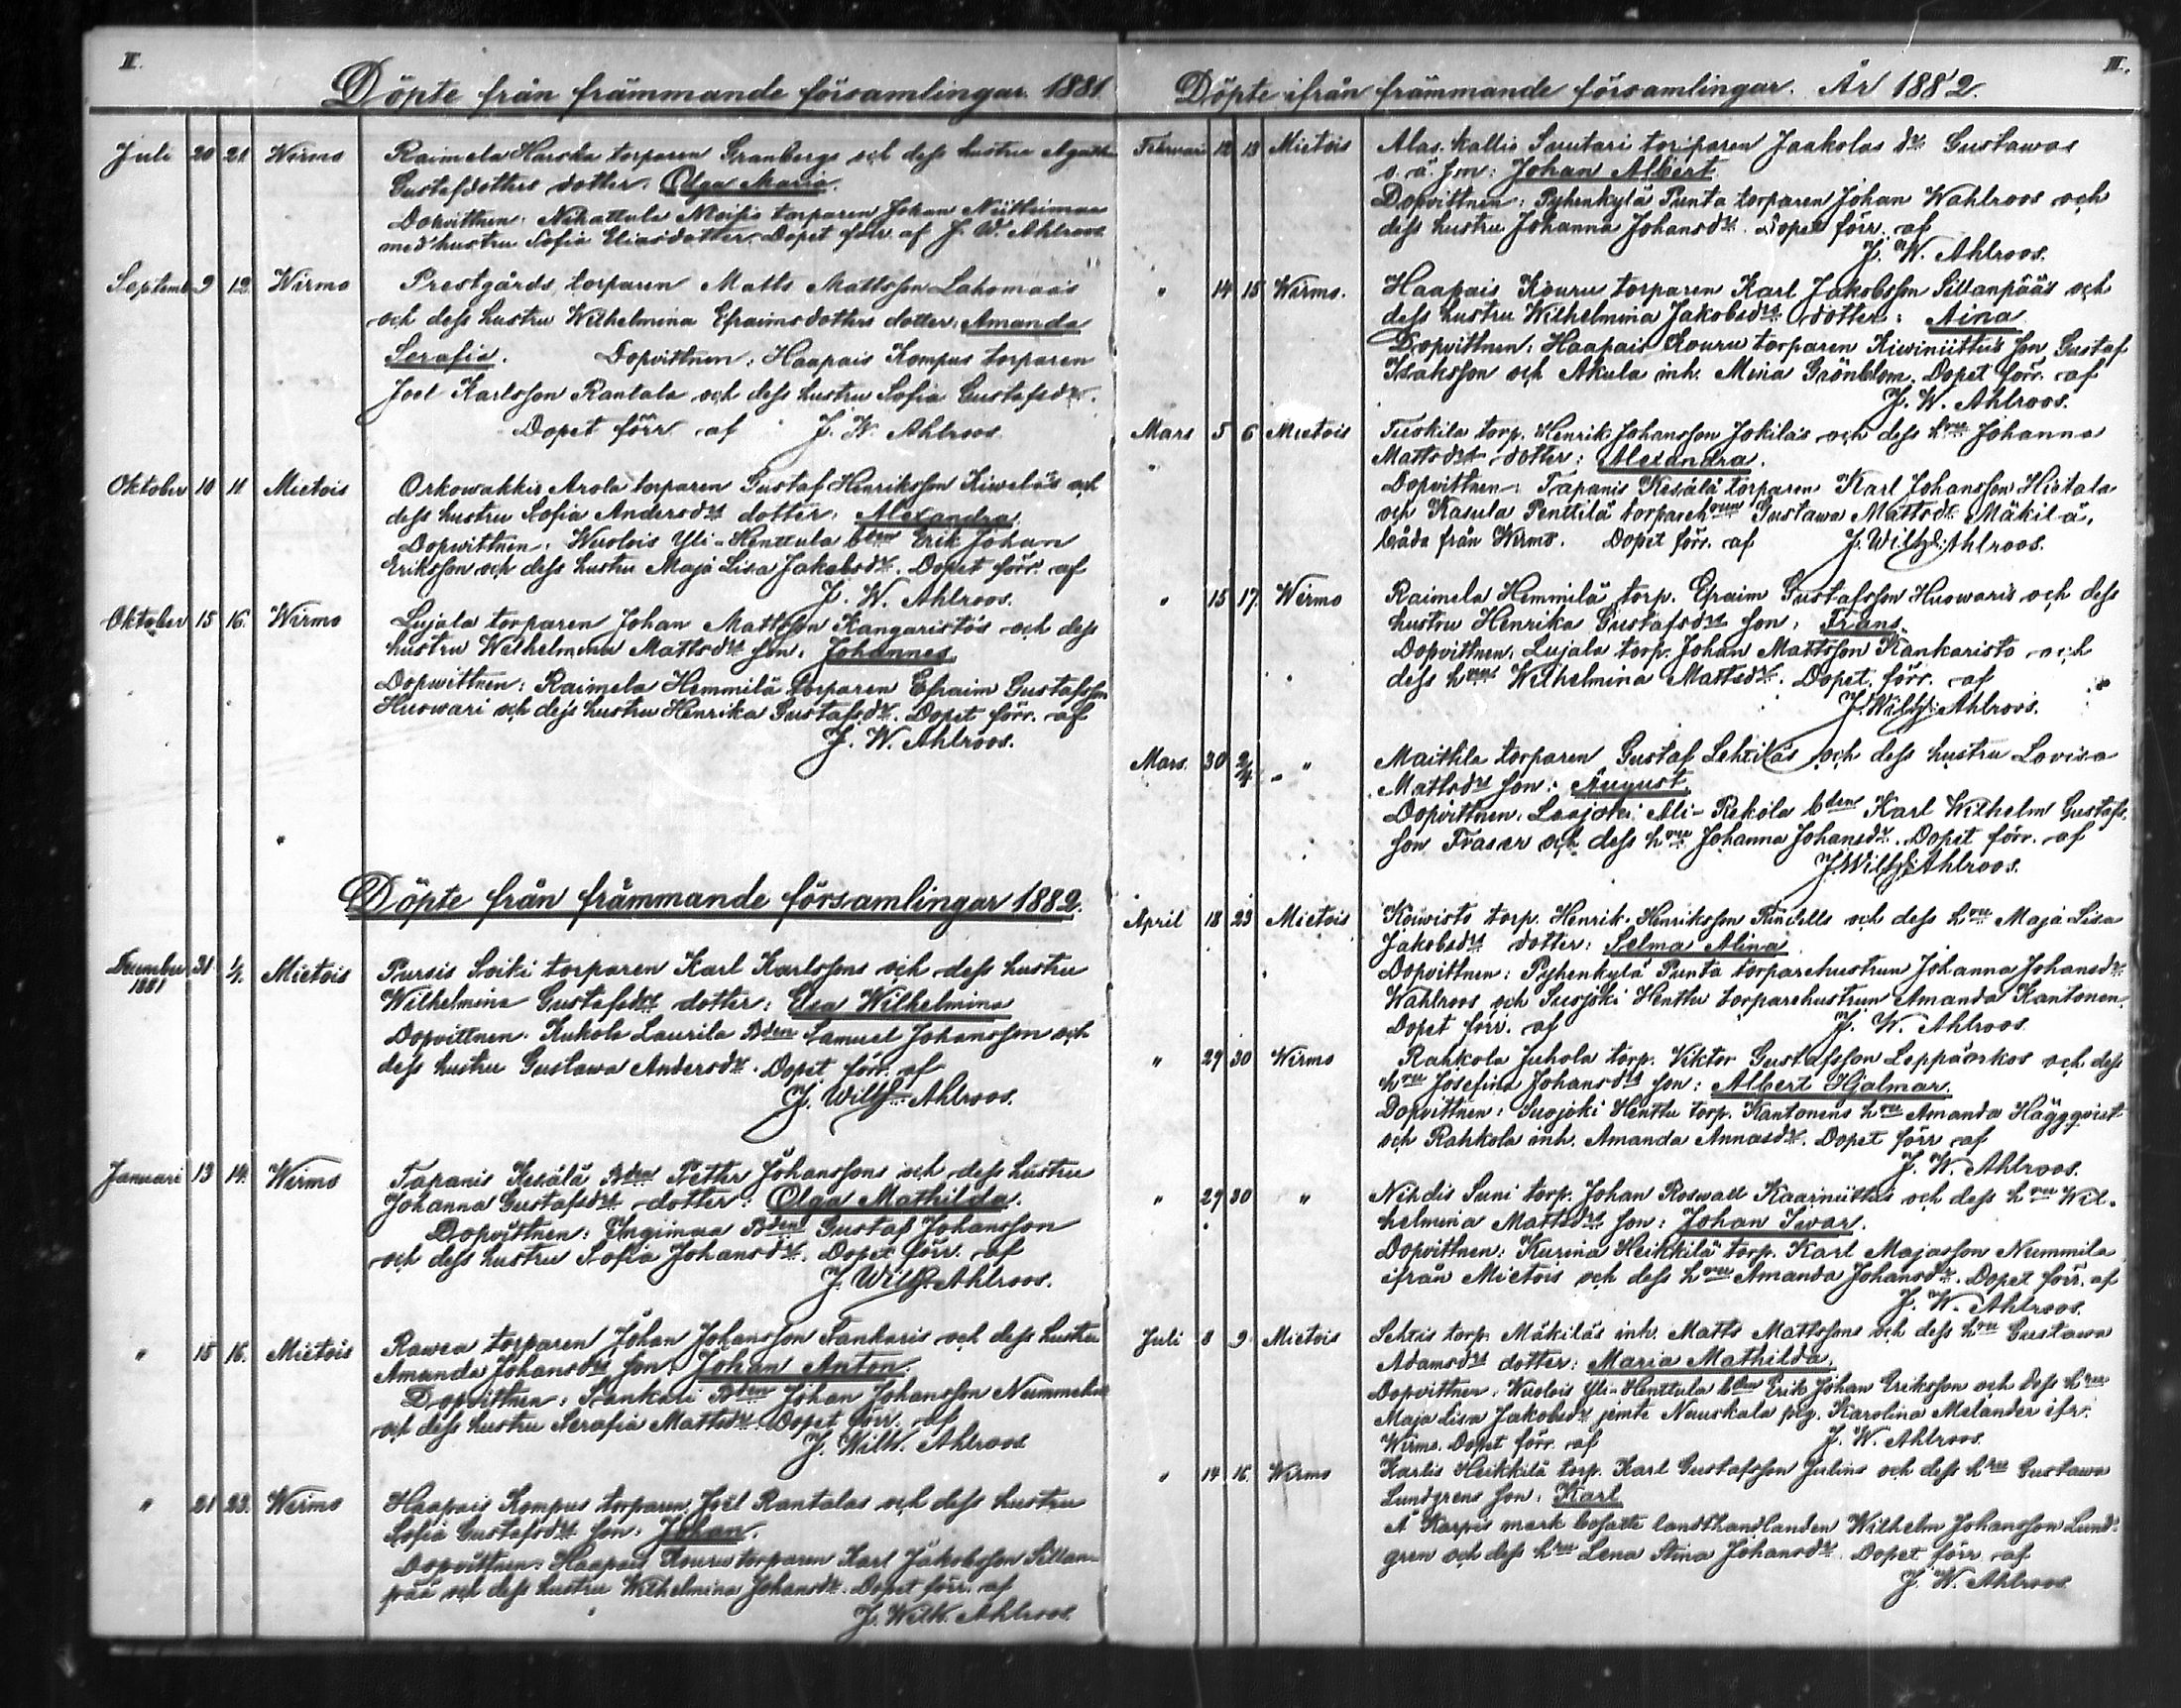 II.
Döpte från främmande församlingar. 1881.
Juli 20 21. Wirmo Raimela Harsda torparen Granbergs och dess hustru Agatha
Gustafdotters dotter: Olga Maria.
Dopvittnen: Nihattula Moisio torparen Johan Niittumaa
med hustru Sofia Eliasdotter. Dopet förr. af J. W. Ahlroos.
Septemb. 9 12. Wirmo Prestgårds torparen Matts Mattsson Lahomaas
och dess hustru Wilhelmina Efraimsdotters dotter: Amanda
Serafia. Dopvittnen: Haapais Kompus torparen
Joel Karlsson Rantala och dess hustru Sofia Gustafsdr.
Dopet förr. af J. W. Ahlroos.
Oktober 10 11 Mietois Orkowakkis Arola torparen Gustaf Henriksson Kiweläs och
dess hustru Sofia Andersdrs dotter: Alexandra.
Dopvittnen: Wuolois Yli-Henttula bden Erik Johan
Eriksson och dess hustru Maja Lisa Jakobsdr. Dopet förr. af
J. W. Ahlroos.
Oktober 15 16. Wirmo Lujala torparen Johan Mattsson Kangaristos och dess
hustru Wilhelmina Mattsdrs son: Johannes.
Dopvittnen: Raimela Hemmilä torparen Efraim Gustafsson
Huowari och dess hustru Henrika Gustafsdr. Dopet förr. af
J. W. Ahlroos.
Döpte från främmande församlingar 1882.
December 31 1/1. Mietois Pursis Soiki torparen Karl Karlssons och dess hustru
1881 Wilhelmina Gustafsdrs dotter: Elsa Wilhelmina
Dopvittnen: Kukola Laurila Bden Samuel Johansson och
dess hustru Gustawa Andersdr. Dopet förr. af
J. Wilh. Ahlroos.
Januari 13 14. Wirmo Tapanis Kesälä Bden Petter Johanssons och dess hustru
Johanna Gustafsdrs dotter: Olga Mathilda.
Dopvittnen: Yngimaa Bden Gustaf Johansson
och dess hustru Sofia Johansdr. Dopet förr. af
J. Wilh. Ahlroos.
" 15 16. Mietois Rawea torparen Johan Johansson Tankaris och dess hustru
Amanda Johansdrs son: Johan Anton.
Dopvittnen: Tankari Bden Johan Johansson Nummelin
och dess hustru Serafia Mattsdr. Dopet förr. af
J. Wilh. Ahlroos
" 21 23. Wirmo Haapais Kompus torparen Joel Rantalas och dess hustru
Sofia Gustafsdrs son: Johan.
Dopvittnen: Haapais Kouru torparen Karl Jakobsson Sillan-
pää och dess hustru Wilhelmina Johansdr. Dopet förr. af
J. Wilh. Ahlroos.
III.
Döpte ifrån främmande församlingar. År 1882.
Februari 12 13 Mietois Alas-kallio Suutari torparen Jaakolas dr Gustawas
o. ä. son: Johan Albert.
Dopvittnen: Pyhenkylä Punta torparen Johan Wahlroos och
dess hustru Johanna Johansdr. Dopet förr. af
J. W. Ahlroos.
" 14 15 Wirmo. Haapais Kouru torparen Karl Jakobsson Sillanpääs och
dess hustru Wilhelmina Jakobsdrs dotter: Aina
Dopvittnen: Haapais Kouru torparen Kiwiniittus son Gustaf
Isaksson och Akula inh. Mina Grönblom. Dopet förr. af
J. W. Ahlroos.
Mars 5 6 Mietois Tuokila torp. Henrik Johansson Jokilas och dess hru Johanna
Mattsdrs dotter: Alexandra.
Dopvittnen: Tapanis Kesälä torparen Karl Johansson Hietala
och Kasula Penttilä torparehrun Gustawa Mattsdr Mäkilä,
båda från Wirmo. Dopet förr. af J. Wilh. Ahlroos.
" 15 17. Wirmo Raimela Hemmilä torp. Efraim Gustafsson Huowaris och dess
hustru Henrika Gustafsdrs son: Frans.
Dopvittnen: Lujala torp. Johan Mattsson Kankaristo och
dess hru Wilhelmina Mattsdr. Dopet förr. af
J. Wilh. Ahlroos.
Mars. 30 2/4 " Maittila torparen Gustaf Lehtiläs och dess hustru Lovisa
Mattsdrs son: August.
Dopvittnen: Laajoki Ali-Rekola bden Karl Wilhelm Gustafs-
son Fraser och dess hru Johanna Johansdr. Dopet förr. af
J. Wilh. Ahlroos.
April 18 23 Mietois Koiwisto torp. Henrik Henriksson Rindells och dess hru Maja Lisa
Jakobsdrs dotter: Selma Alina
Dopvittnen: Pyhenkylä Punta torparehustrun Johanna Johansdr
Wahlroos och Suojoki Henttu torparehustrun Amanda Kantonen.
Dopet förr. af J. W. Ahlroos.
" 29 30 Wirmo Rahkola Juhola torp. Viktor Gustafsson Leppäorkos och dess
hru Josefina Johansdrs son: Albert Hjalmar.
Dopvittnen: Suojoki Henttu torp. Kantonens hru Amanda Häggqvist
och Rahkola inh. Amanda Annasdr. Dopet förr. af
J. W. Ahlroos.
" 29 30 " Nihdis Suni torp. Johan Roswall Kaarniittus och dess hru Wil-
helmina Mattsdrs son: Johan Iwar.
Dopvittnen: Kurina Heikkilä torp. Karl Majasson Nummila
ifrån Mietois och dess hru Amanda Johansdr. Dopet förr. af
J. W. Ahlroos.
Juli 8 9 Mietois Sehtis torp. Mäkiläs inh. Matts Mattssons och dess hru Gustawa
Adamsdrs dotter: Maria Mathilda.
Dopvittnen: Wuolois Yli-Henttula bden Erik Johan Eriksson och dess hru
Maja Lisa Jakobsdr jemte Nuuskala pig. Karolina Melander ifr.
Wirmo. Dopet förr. af J. W. Ahlroos.
" 14 16. Wirmo Karlis Heikkilä torp. Karl Gustafsson Julins och dess hru Gustawa
Lundgrens son: Karl
Å Karpis mark bosatte landthandlanden Wilhelm Johansson Lund-
gren och dess hru Lena Stina Johansdr. Dopet förr. af
J. W. Ahlroos